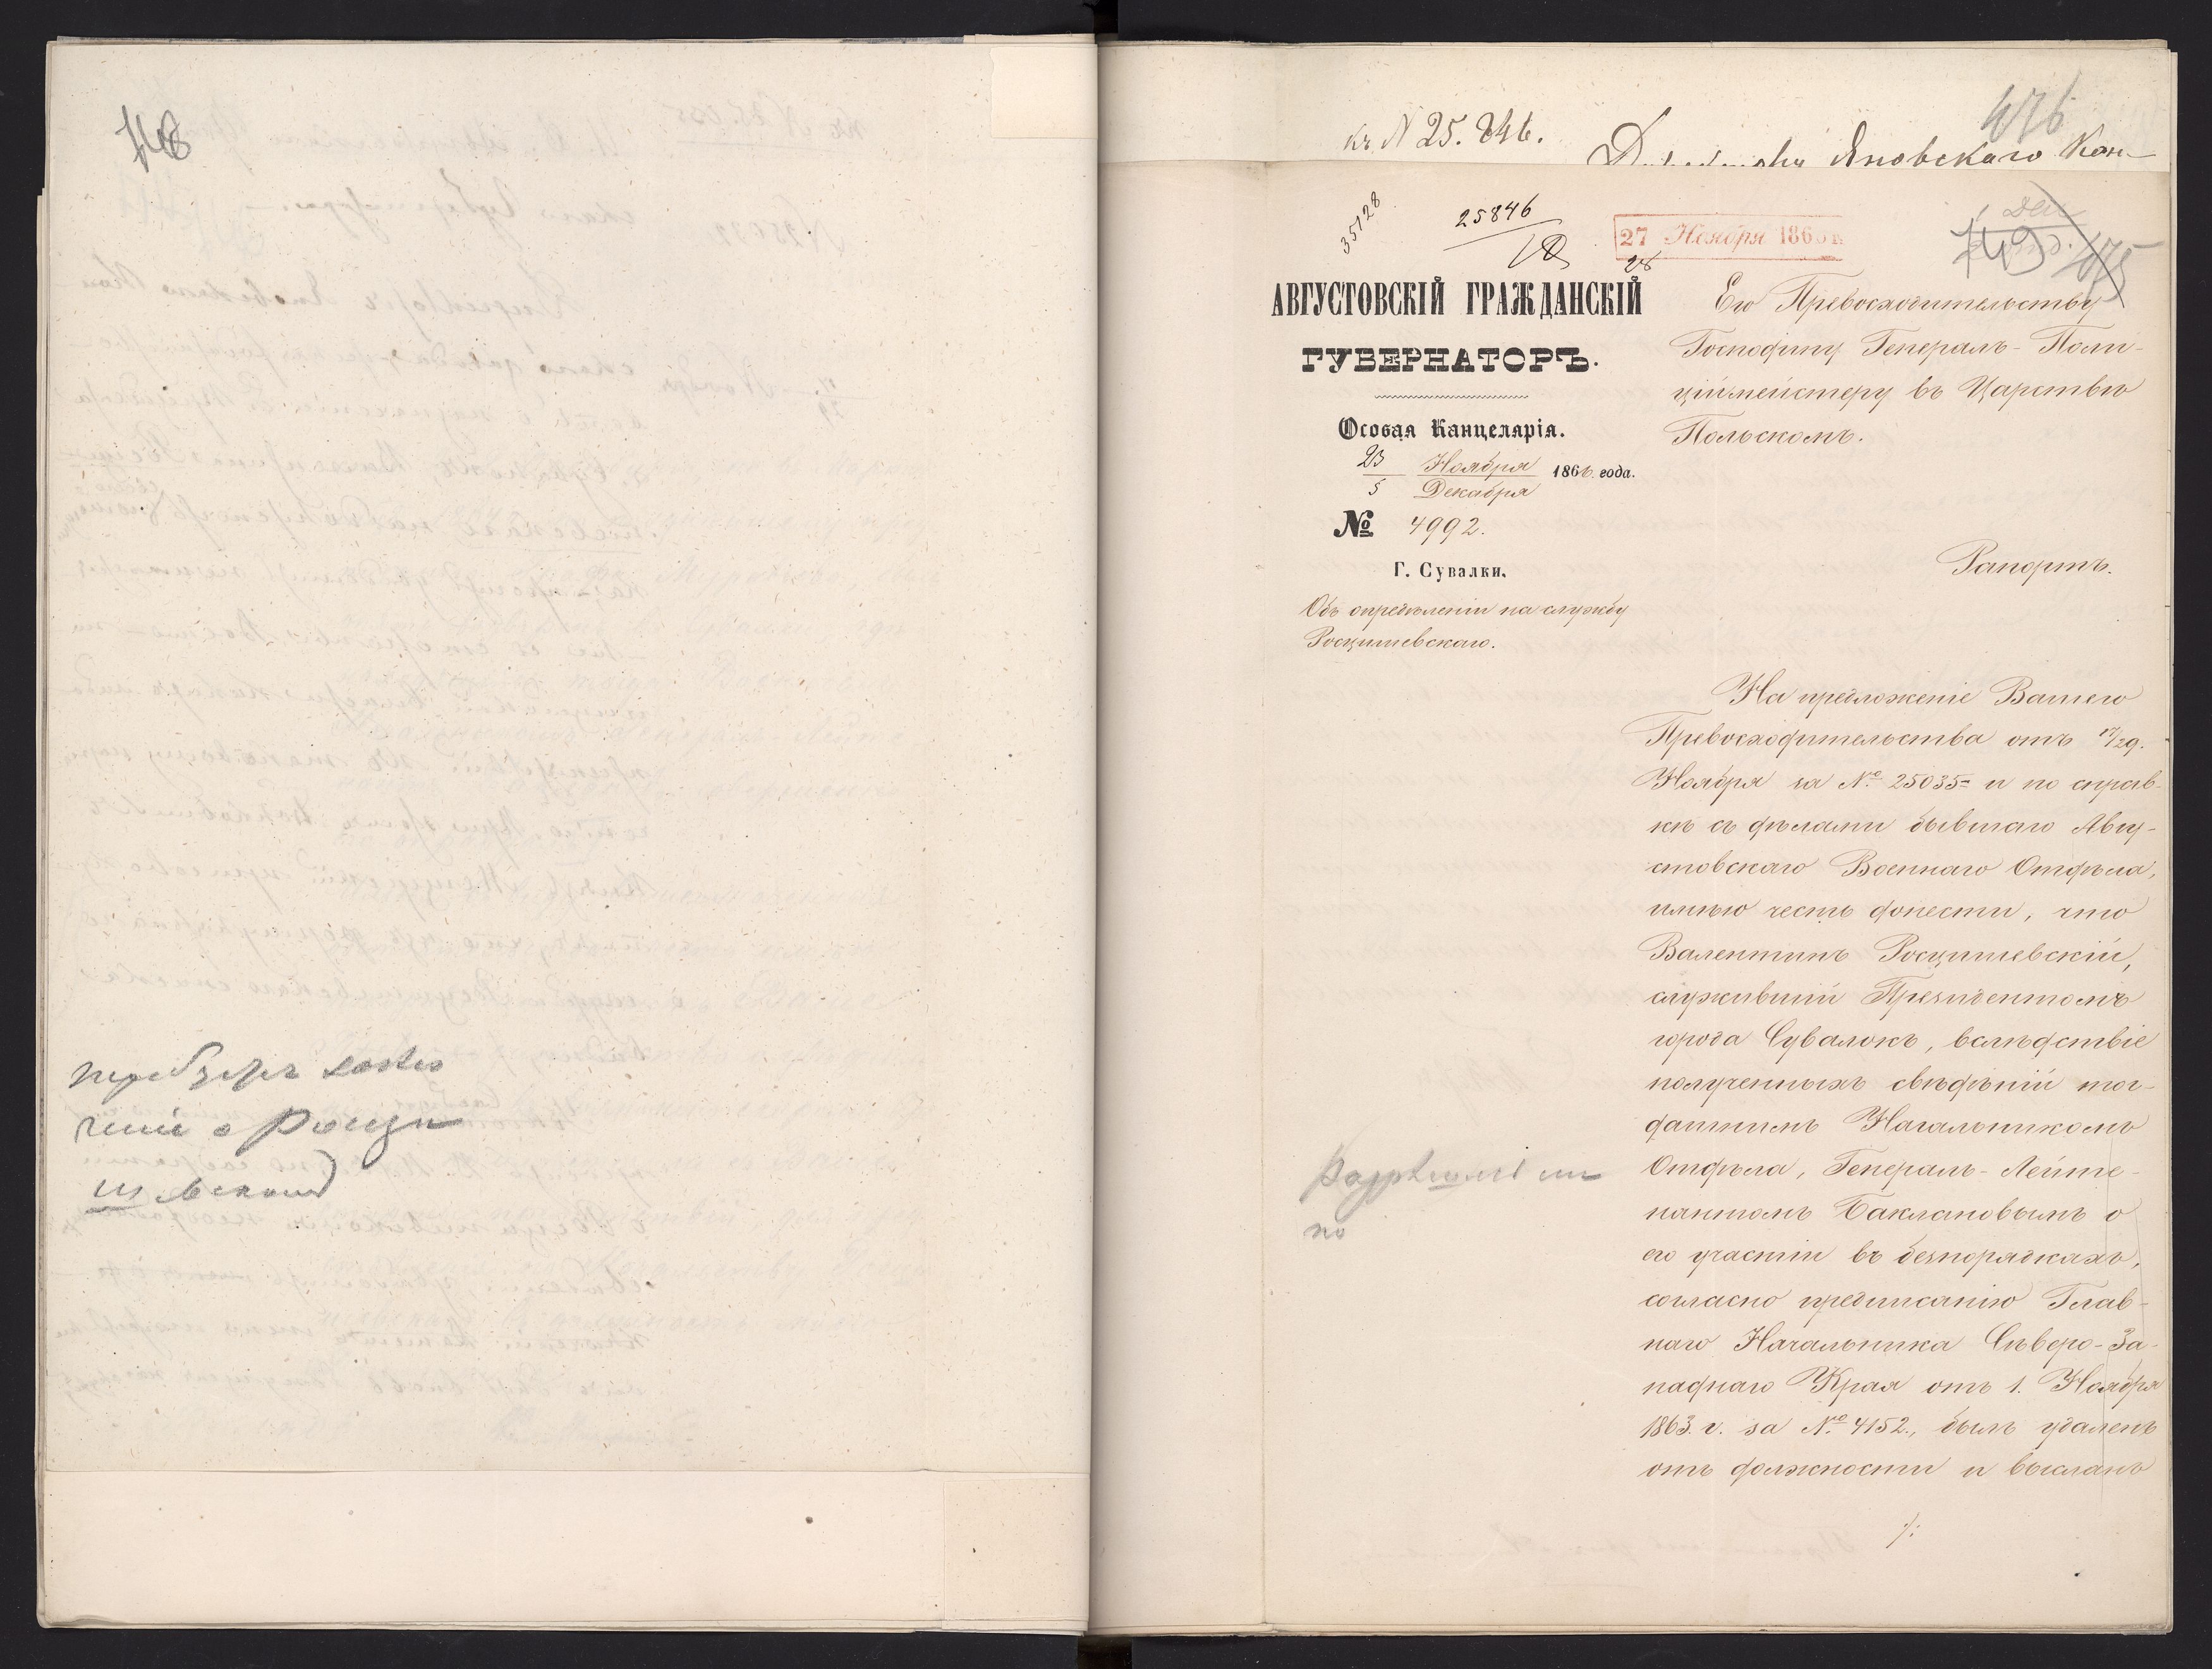 748
перебзоръ
чение о Росци
шевском
476
къ N 25.846.
Яновскаго Кон-
35128
25846
27 Ноября 186
28
749
475
АВГУСТОВСКІЙ ГРАЖДАНСКІЙ
ГУБЕРНАТОРЪ.
Особая Канцелярія.
23 Ноября
5 Декабря
1866. года.
№ 4992.
Г. Сувалки.
Объ опредѣленіи на службу
Росцишевскаго.
Его Превосходительству
Господину Генералъ-Поли-
цiймейстеру въ Царствѣ
Польскомъ.
Рапортъ.
На предложеніе Вашего
Превосходительства отъ 17/29.
Ноября за № 25035 и по справ-
кѣ съ дѣлами бывшаго Авгу-
стовскаго Военнаго Отдѣла,
имѣю честь донести, что
Валентинъ Росцишевскій,
служившій Президентомъ
города Сувалокъ, вслѣдствіе
полученныхъ свѣдѣній тог-
дашнимъ Начальникомъ
Отдѣла, Генералъ-Лейте-
нантомъ Баклановымъ о
его участіи въ безпорядкахъ,
согласно предписанію Глав-
наго Начальника Сѣверо-За-
паднаго Края отъ 1. Ноября
1863. г. за № 4152., былъ удаленъ
отъ должности и высланъ
./: